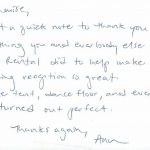 a quick note to thank you
thing you and everybody else
Rental did to help make
ing reception so great.
tent, dance floor, and eve
turned out perfect.
Thanks again,
Ann